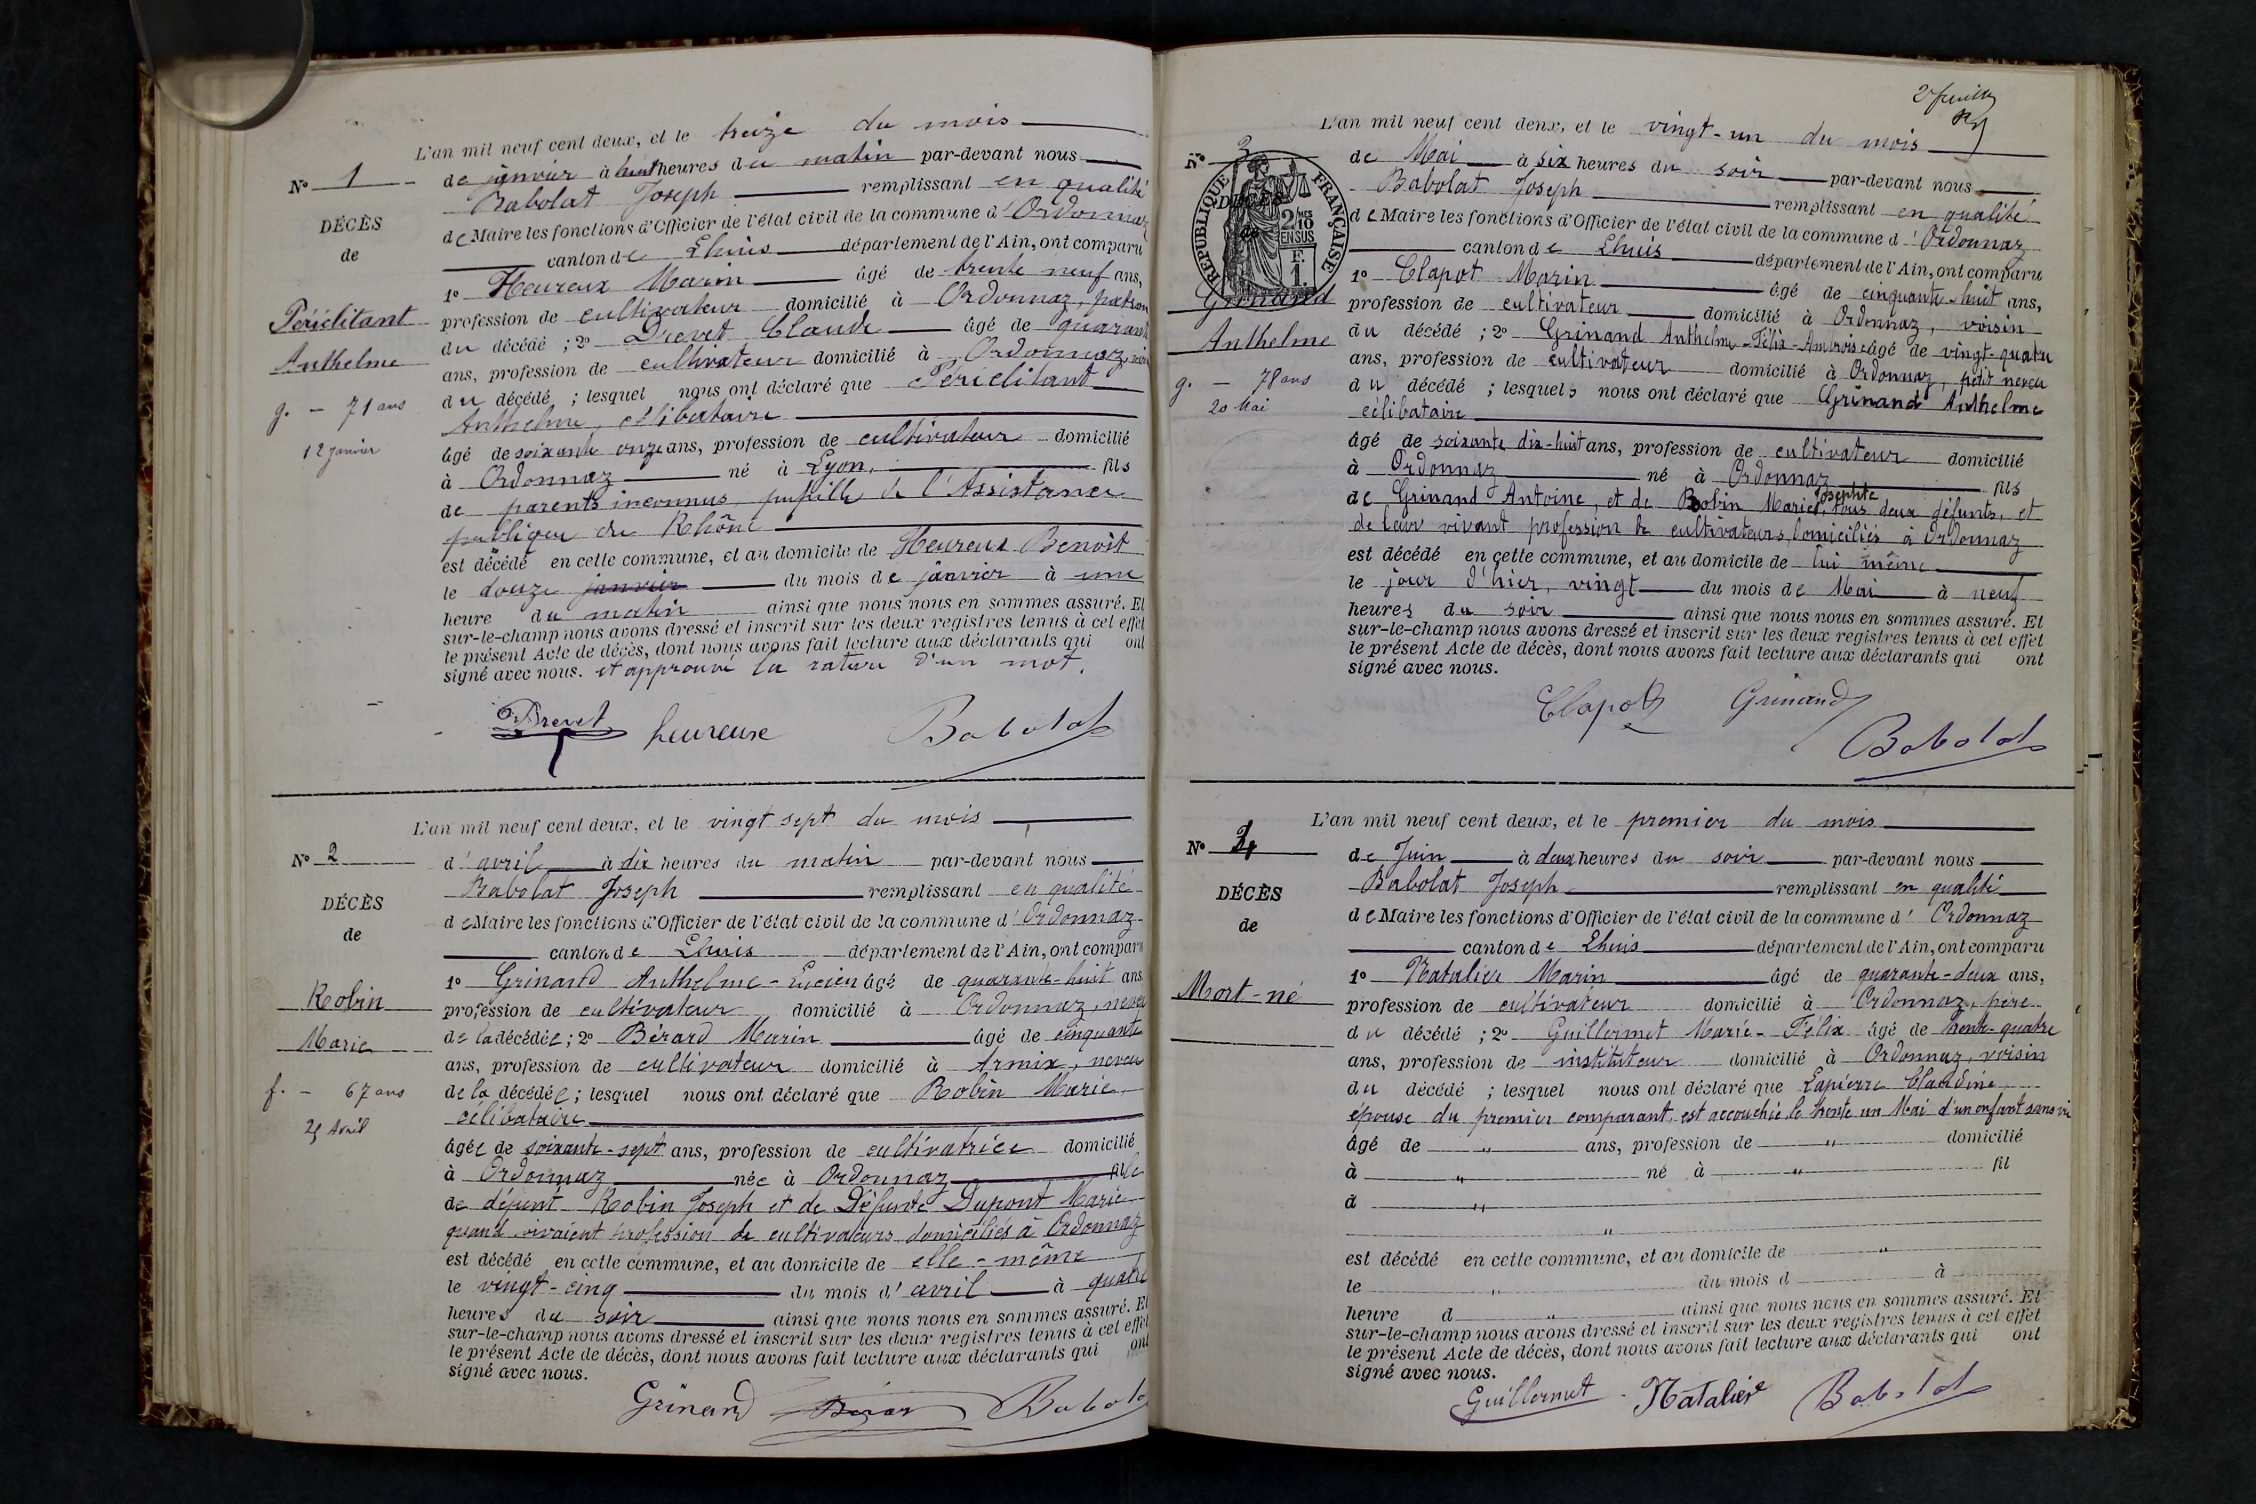 L'an mil neuf cent deux, et le treize du mois
de janvier à huit heures du matin par-devant nous
Babolat Joseph remplissant en qualité
de Maire les fonctions d'Officier de l'état civil de la commune d'Ordonnaz
canton de Lhuis département de l'Ain, ont comparu
1º Heureux Marin âgé de trente neuf ans,
profession de cultivateur domicilié à Ordonnaz, patron
du décédé ; 2º Drevet Claude âgé de quarante
ans, profession de cultivateur domicilié à Ordonnaz,
du décédé ; lesquel nous ont déclaré que Périclitant
Anthelme, célibataire
âgé de soixante onze ans, profession de cultivateur domicilié
à Ordonnaz né à Lyon, fils
de parents inconnus pupille de l'Assistance
publique du Rhône
est décédé en cette commune, et au domicile de Heureux Benoît
le douze janvier du mois de janvier à une
heure du matin ainsi que nous nous en sommes assuré. Et
sur-le-champ nous avons dressé et inscrit sur les deux registres tenus à cet effet
le présent Acte de décès, dont nous avons fait lecture aux déclarants qui ont
signé avec nous. et approuvé la rature d'un mot.
Nº 1
DÉCÈS
de
Périclitant
Anthelme
g. - 71 ans
12 janvier
Drevet heureux Babolat
L'an mil neuf cent deux, et le vingt sept du mois
d'avril à dix heures du matin par-devant nous
Babolat Joseph remplissant en qualité
de Maire les fonctions d'Officier de l'état civil de la commune d'Ordonnaz
canton de Lhuis département de l'Ain, ont comparu
1º Grinand Anthelme-Lucien âgé de quarante-huit ans
profession de cultivateur domicilié à Ordonnaz, neveu
de la décédée ; 2º Bérard Marin âgé de cinquante
ans, profession de cultivateur domicilié à Armix, neveu
de la décédée ; lesquel nous ont déclaré que Robin Marie
célibataire
âgée de soixante-sept ans, profession de cultivatrice domicilié
à Ordonnaz née à Ordonnaz fille
de défunt Robin Joseph et de Défunte Dupont Marie
quand vivaient profession de cultivateurs domiciliés à Ordonnaz
est décédé en cette commune, et au domicile de elle-même
le vingt-cinq du mois d'avril à quatre
heures du soir ainsi que nous nous en sommes assuré. Et
sur-le-champ nous avons dressé et inscrit sur les deux registres tenus à cet effet
le présent Acte de décès, dont nous avons fait lecture aux déclarants qui ont
signé avec nous.
Nº 2
DÉCÈS
de
Robin
Marie
f. - 67 ans
25 Avril
Grinand Bérard Babolat
2e feuille
L'an mil neuf cent deux, et le vingt-un du mois
de Mai à six heures du soir par-devant nous
Babolat Joseph remplissant en qualité
de Maire les fonctions d'Officier de l'état civil de la commune d'Ordonnaz
canton de Lhuis département de l'Ain, ont comparu
1º Clapot Marin âgé de cinquante-huit ans,
profession de cultivateur domicilié à Ordonnaz, voisin
du décédé ; 2º Grinand Anthelme-Félix-Ambroise âgé de vingt-quatre
ans, profession de cultivateur domicilié à Ordonnaz, petit neveu
du décédé ; lesquels nous ont déclaré que Grinand Anthelme
célibataire
âgé de soixante dix-huit ans, profession de cultivateur domicilié
à Ordonnaz né à Ordonnaz fils
de Grinand Antoine, et de Robin Marie Josephte, tous deux défunts, et
de leur vivant profession de cultivateurs, domiciliés à Ordonnaz
est décédé en cette commune, et au domicile de lui même
le jour d'hier, vingt du mois de Mai à neuf
heures du soir ainsi que nous nous en sommes assuré. Et
sur-le-champ nous avons dressé et inscrit sur les deux registres tenus à cet effet
le présent Acte de décès, dont nous avons fait lecture aux déclarants qui ont
signé avec nous.
Nº 3
DÉCÈS
de
RÉPUBLIQUE FRANÇAISE
2/10 MES
EN SUS
F.
1.
Grinand
Anthelme
g. - 78 ans
20 Mai
Clapot Grinand
Babolat
L'an mil neuf cent deux, et le premier du mois
de Juin à deux heures du soir par-devant nous
Babolat Joseph remplissant en qualité
de Maire les fonctions d'Officier de l'état civil de la commune d'Ordonnaz
canton de Lhuis département de l'Ain, ont comparu
1º Natalier Marin âgé de quarante-deux ans,
profession de cultivateur domicilié à Ordonnaz, père
du décédé ; 2º Guillermet Marie-Félix âgé de trente-quatre
ans, profession de instituteur domicilié à Ordonnaz, voisin
du décédé ; lesquel nous ont déclaré que Lapierre Claudine
épouse du premier comparant, est accouchée le trente un Mai d'un enfant sans vie
âgé de " ans, profession de " domicilié
à " né à " fil
d "
"
est décédé en cette commune, et au domicile de "
le " du mois d à
heure d " ainsi que nous nous en sommes assuré. Et
sur-le-champ nous avons dressé et inscrit sur les deux registres tenus à cet effet
le présent Acte de décès, dont nous avons fait lecture aux déclarants qui ont
signé avec nous.
Nº 4
DÉCÈS
de
Mort-né
Guillermet Natalier Babolat